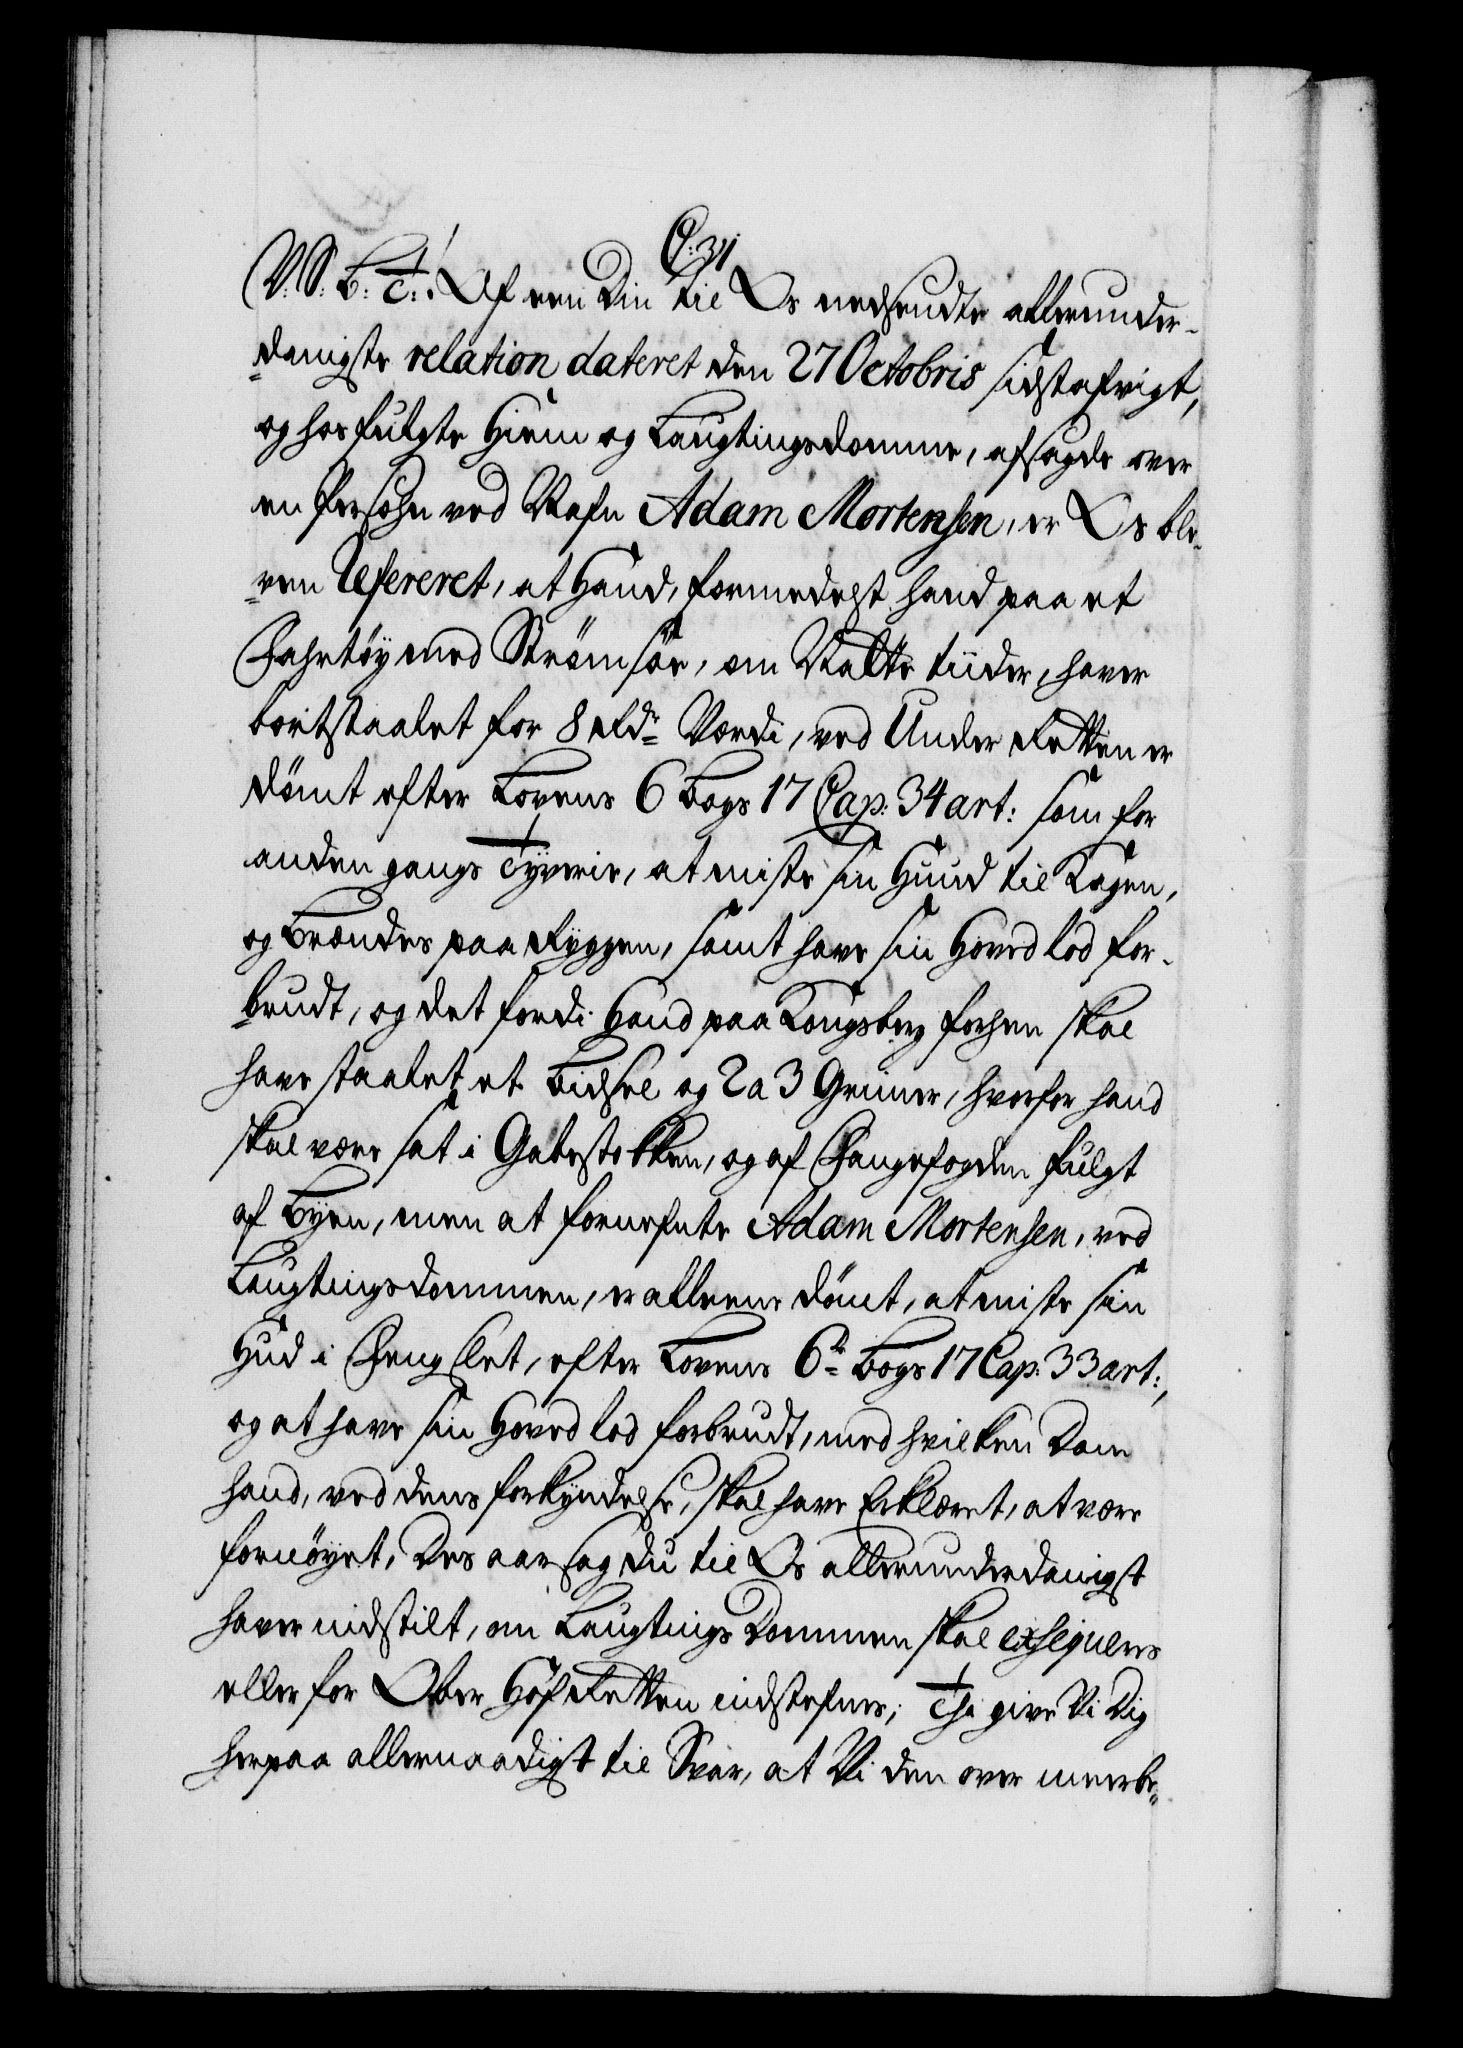 C: 31
V: S: B: T:. Af een Din til Os nedsendte allerunder-
danigste relation dateret den 27 Octobris sidstafvigt,
og hosfulgte Hiem og Laugtingsdomme, afsagde over
en Persohn ved Nafn Adam Mortensen, er Os ble-
ven refereret, at Hand, formedelst hand paa et
Fahrtöy med Strömsöe, om Natte tiider, haver
bortstaalet for 8 Rdr Værdi, ved Under Retten er
dömt efter Lovens 6 Bogs 17 Cap: 34 art: som for
anden gangs Tyverie, at miste sin Huud til Kagen,
og Brændes paa Ryggen, samt have sin Hoved lod for-
brudt, og det fordi Hand paa Kongsberg forhen skal
have staalet et Bidsel og 2 a 3 Griimer, hvorfor hand
skal være sat i Gabestokken, og af Fangefogden fulgt
af Byen, men at fornefnte Adam Mortensen, ved
Laugtingsdommen, er alleene dömt, at miste sin
Hud i Fengslet, efter Lovens 6te Bogs 17 Cap: 33 art:,
og at have sin Hoved lod forbrudt, med hvilken Dom
hand, ved dens forkyndelse, skal have Erklæret, at være
fornöyet, Des aarsag du til Os allerunderdanigst
haver indstilt, om Laugtings Dommen skal exseqveres
eller for Ober Hof Retten indstefnes; Thi give Vi Dig
herpaa allernaadigst til Svar, at Vi den over meerbe-